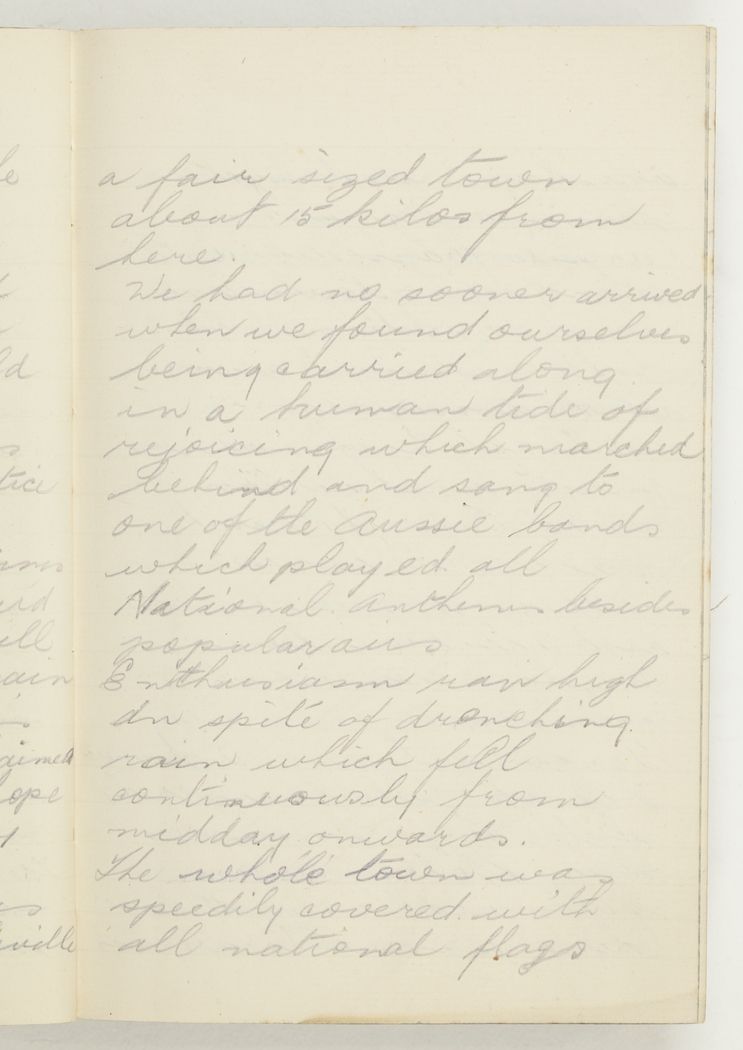 a fair sized town
about 15 kilos from
here.
We had no sooner arrived
when we found ourselves
being carried along
in a human tide of
rejoicing which marched
behind and sang to
one of the Aussie bands
which played all
National Anthems besides
popular airs
Enthusiasm ran high
In spite of drenching
rain which fell
continuously from
midday onwards.
The whole town was
speedily covered with
all national flags